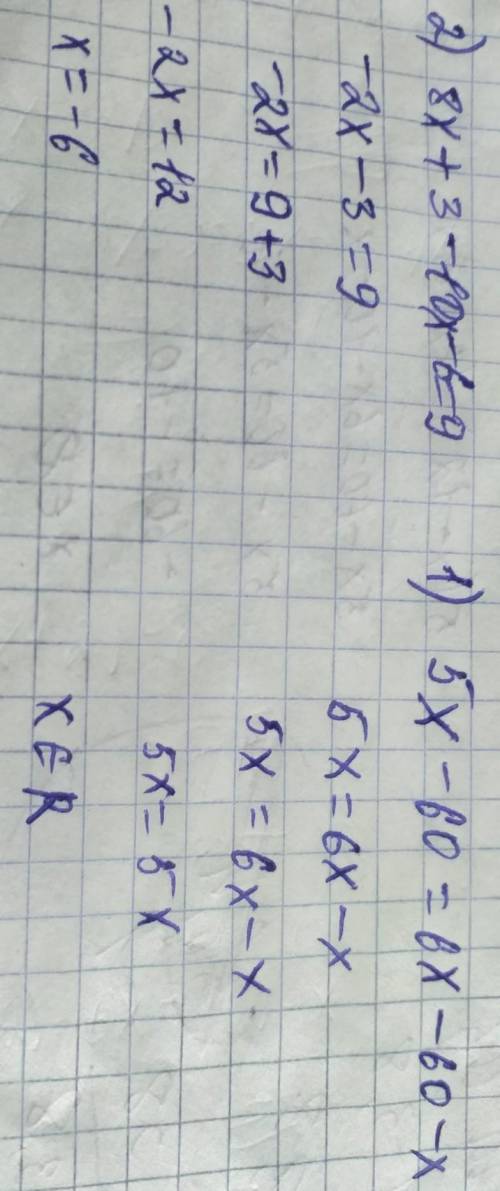 2) 8x + 3 - 10x - 6 = 9
-2x - 3 = 9
-2x = 9 + 3
-2x = 12
x = -6
1) 5x - 60 = 6x - 60 - x
5x = 6x - x
5x = 6x - x
5x = 5x
x ∈ R